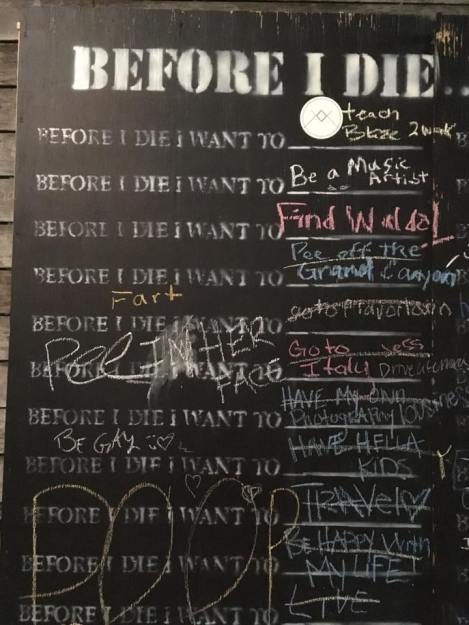 BEFORE I DIE...
teach
BEFORE I DIE I WANT TO 2 work
Be a Music
BEFORE I DIE I WANT TO Artist
BEFORE I DIE I WANT TO Find Waldo!
Pee off the
BEFORE I DIE I WANT TO Grand Canyon
Fart
BEFORE I DIE I WANT TO
PEE IN HER
FACE
Go to
BEFORE I DIE I WANT TO Italy Drive
HAVE MY OWN
BEFORE I DIE I WANT TO Photography
BE GAY
HAVE HELLA
BEFORE I DIE I WANT TO KIDS
BEFORE I DIE I WANT TO TRAVEL
POOP
BE HAPPY WITH
BEFORE I DIE I WANT TO MY LIFE!
BEFORE I DIE I WANT TO LIVE